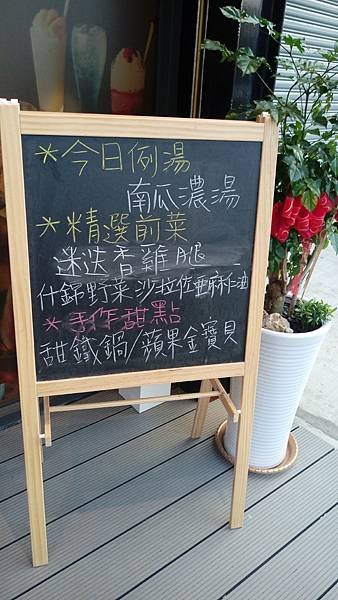 *今日例湯
南瓜濃湯
*精選前菜
迷迭香雞腿
什錦野菜沙拉佐亞麻仁油
*手作甜點
甜鐵鍋/蘋果金寶貝